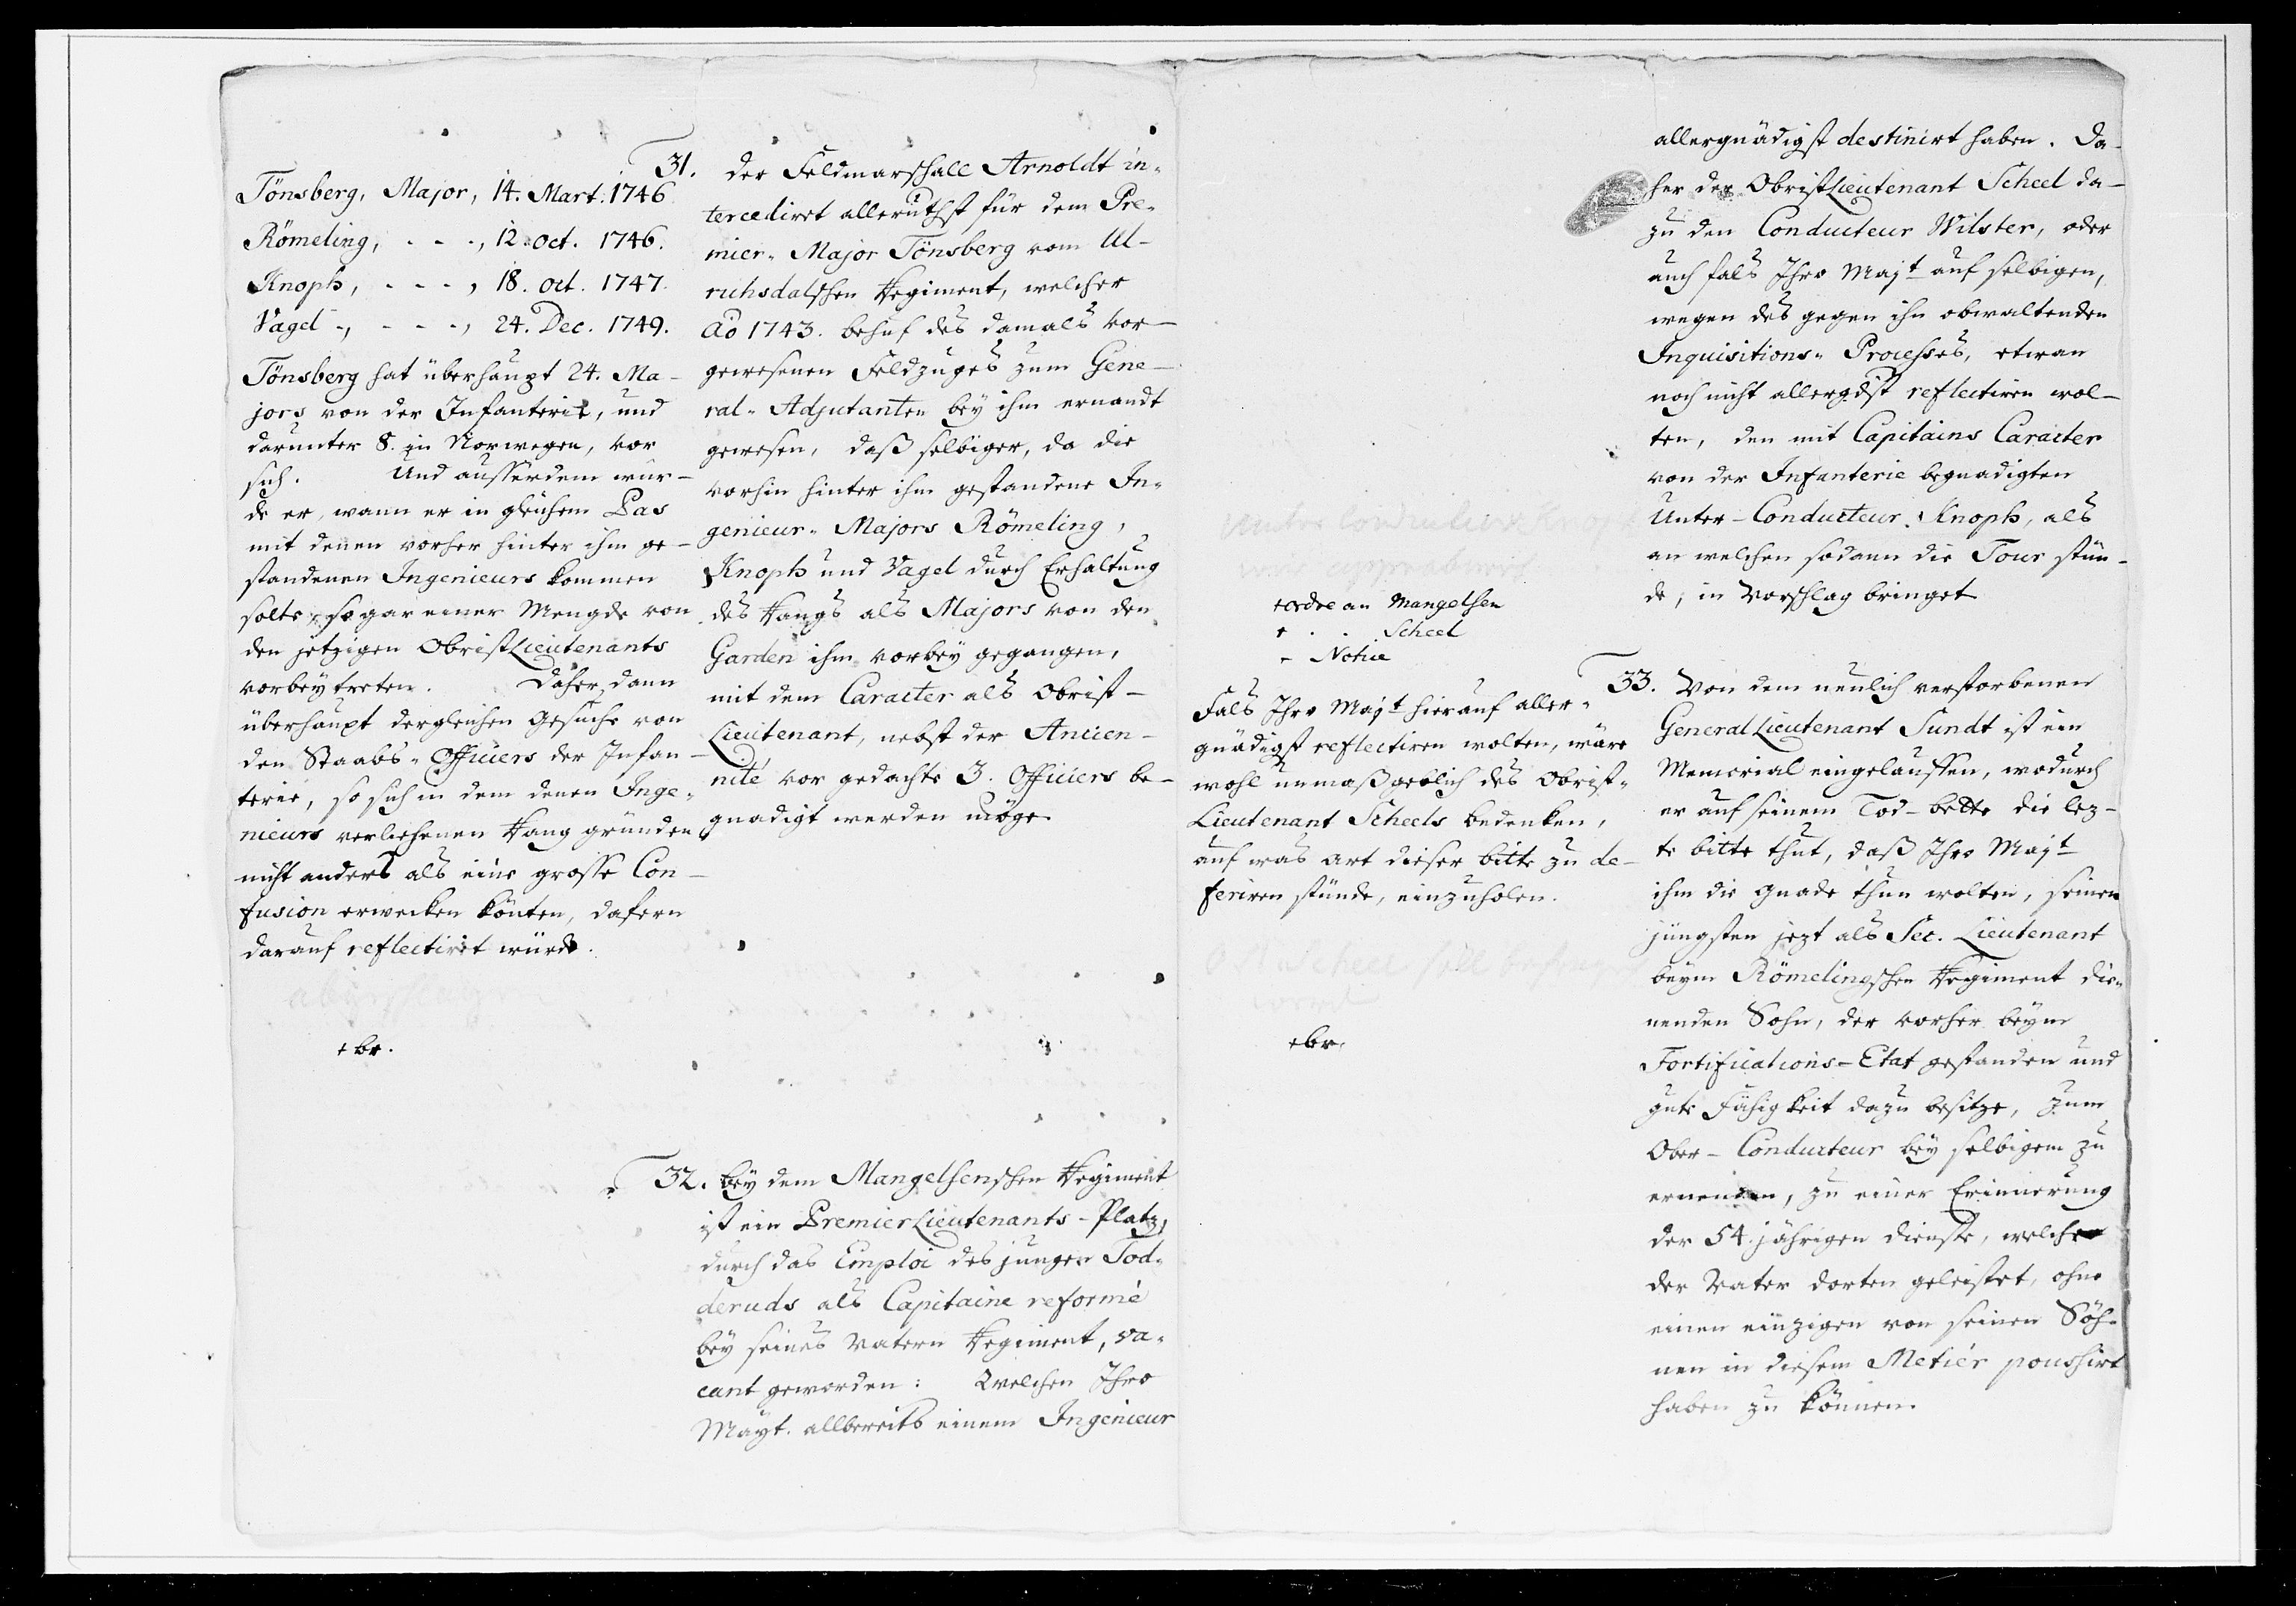 Tönsberg, Major, 14. Mart. 1746
Römeling, - - -, 12. oct. 1746.
Knoph, - - -, 18. oct. 1747.
Vagel -, - - -, 24. Dec. 1749.
Tönsberg hat überhaupt 24. Ma-
jors von der Infanterie, und
darunter 8. in Norwegen, vor
sich. Und ausserdem wür-
de er, wann er in gleichem Pas
mit denen vorher hinter ihm ge-
standenen Ingenieurs kommen
solte, sogar einer Mengde von
den jetzigen ObristLieutenants
vorbeytreten. Daher dann
überhaupt dergleichen Gesuche von
den Staabs-Officiers der Infan-
terie, so sich in dem denen Inge-
nieurs verliehenen Rang gründen
nicht anders als eine grosse Con-
fusion erwecken könten, dafern
darauf reflectiret würde.
+ br.
31. der Feldmarschall Arnoldt in-
tercediret alleruthst für dem Pre-
mier-Major Tönsberg vom Ul-
richsdalschen Regiment, welcher
Ao 1743. behuf des damals vor-
gewesenen Feldzuges zum Gene-
ral-Adjutanten bey ihm ernandt
gewesen, daß selbiger, da die
vorhin hinter ihm gestandene In-
genieur-Majors Römeling,
Knoph und Vagel durch Erhaltung
des Rangs als Majors von den
Garden ihm vorbey gegangen,
mit dem Caracter als Obrist-
Lieutenant, nebst der Ancien-
nité vor gedachte 3. Officiers be-
gnadigt werden möge.
32. bey dem Mangelsenschen Regiment
ist ein PremierLieutenants-Platz,
durch das Emploi des jungen Tod-
deruds als Capitaine reformé
bey seines Vatern Regiment, va-
cant geworden: Welchen Ihro
Mayt. allbereits einem Ingenieur
Unter Conducteur Knoph
wird approbiret
+ordre an Mangelsen
+ . . Scheel
- Notice
Fals Ihro Majt hierauf aller-
gnädigst reflectiren wolten, wäre
wohl unmaßgeblich des Obrist-
Lieutenant Scheels bedenken,
auf was art dieser bitte zu de-
feriren stünde, einzuholen.
Scheel soll befragt
+br.
allergnädigst destinirt haben. Da-
her der ObristLieutenant Scheel da-
zu den Conducteur Wilster, oder
auch fals Ihro Majt auf selbigen,
wegen des gegen ihn obwaltenden
Inquisitions-Processes, etwan
noch nicht allergdst reflectiren wol-
ten, den mit Capitains Caracter
von der Infanterie begnadigten
Unter-Conducteur Knoph, als
an welchen sodann die Tour stün-
de, in Vorschlag bringet
33. Von dem neulich verstorbenen
GeneralLieutenant Sundt ist ein
Memorial eingelauffen, wodurch
er auf seinem Tod-bette die lez-
te bitte thut, daß Ihro Majt
ihm die gnade thun wolten, seinen
jüngsten jezt als Sec. Lieutenant
beym Römelingschen Regiment die-
nenden Sohn, der vorher beym
Fortifications-Etat gestanden und
gute Fähigkeit dazu besitze, zum
Ober-Conducteur bey selbigem zu
ernennen, zu einer Erinnerung
der 54. jährigen dienste, welche
der Vater dorten geleistet, ohne
einen einzigen von seinen Söh-
nen in diesem Metiér poushirt
haben zu können.